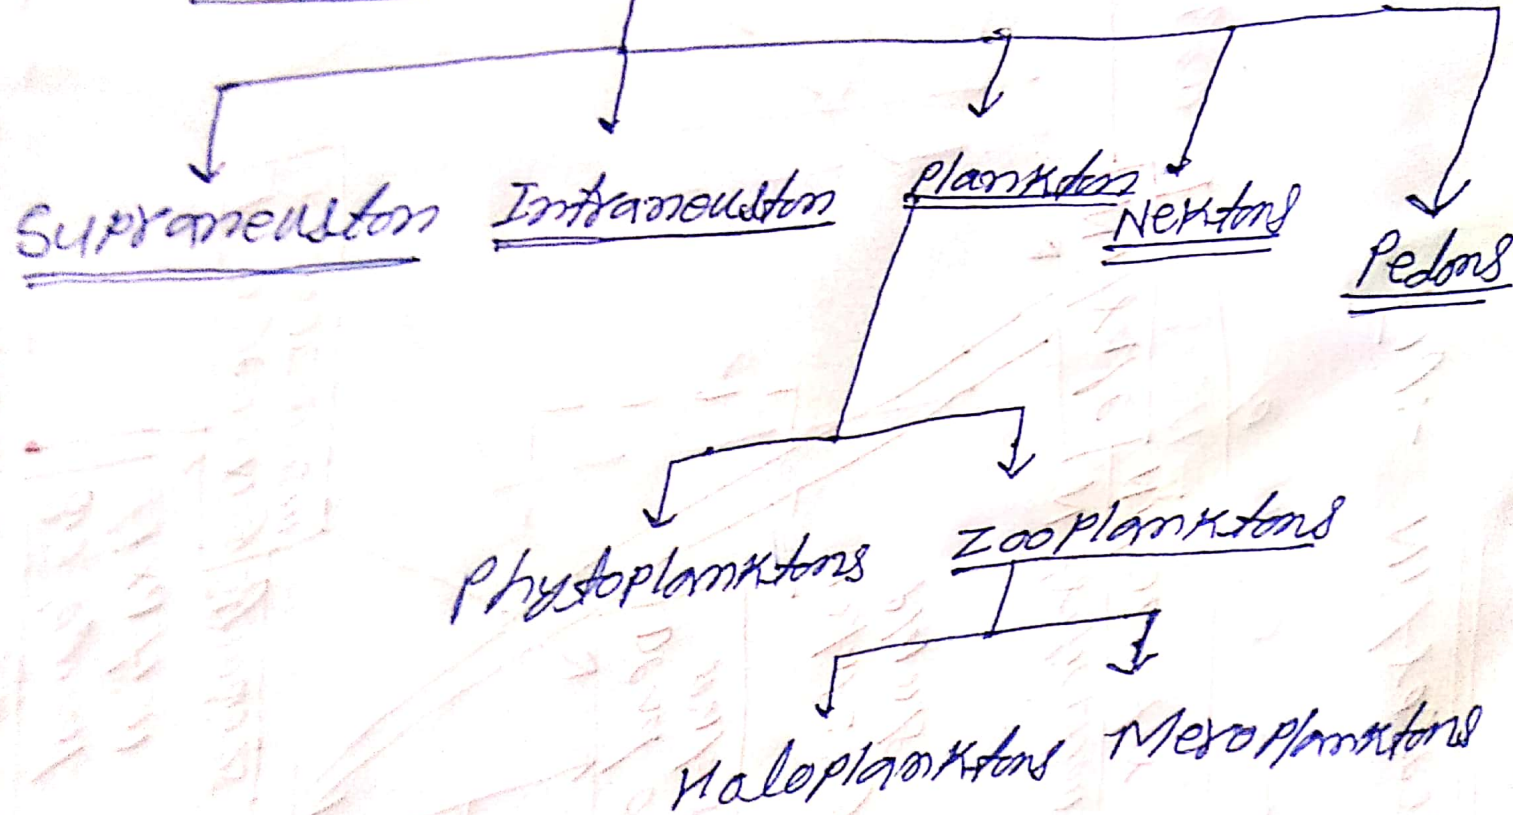 Supraneuston Intraneuston Plankton Nektons Pedons
Phytoplanktons Zooplanktons
Haloplanktons Meroplanktons